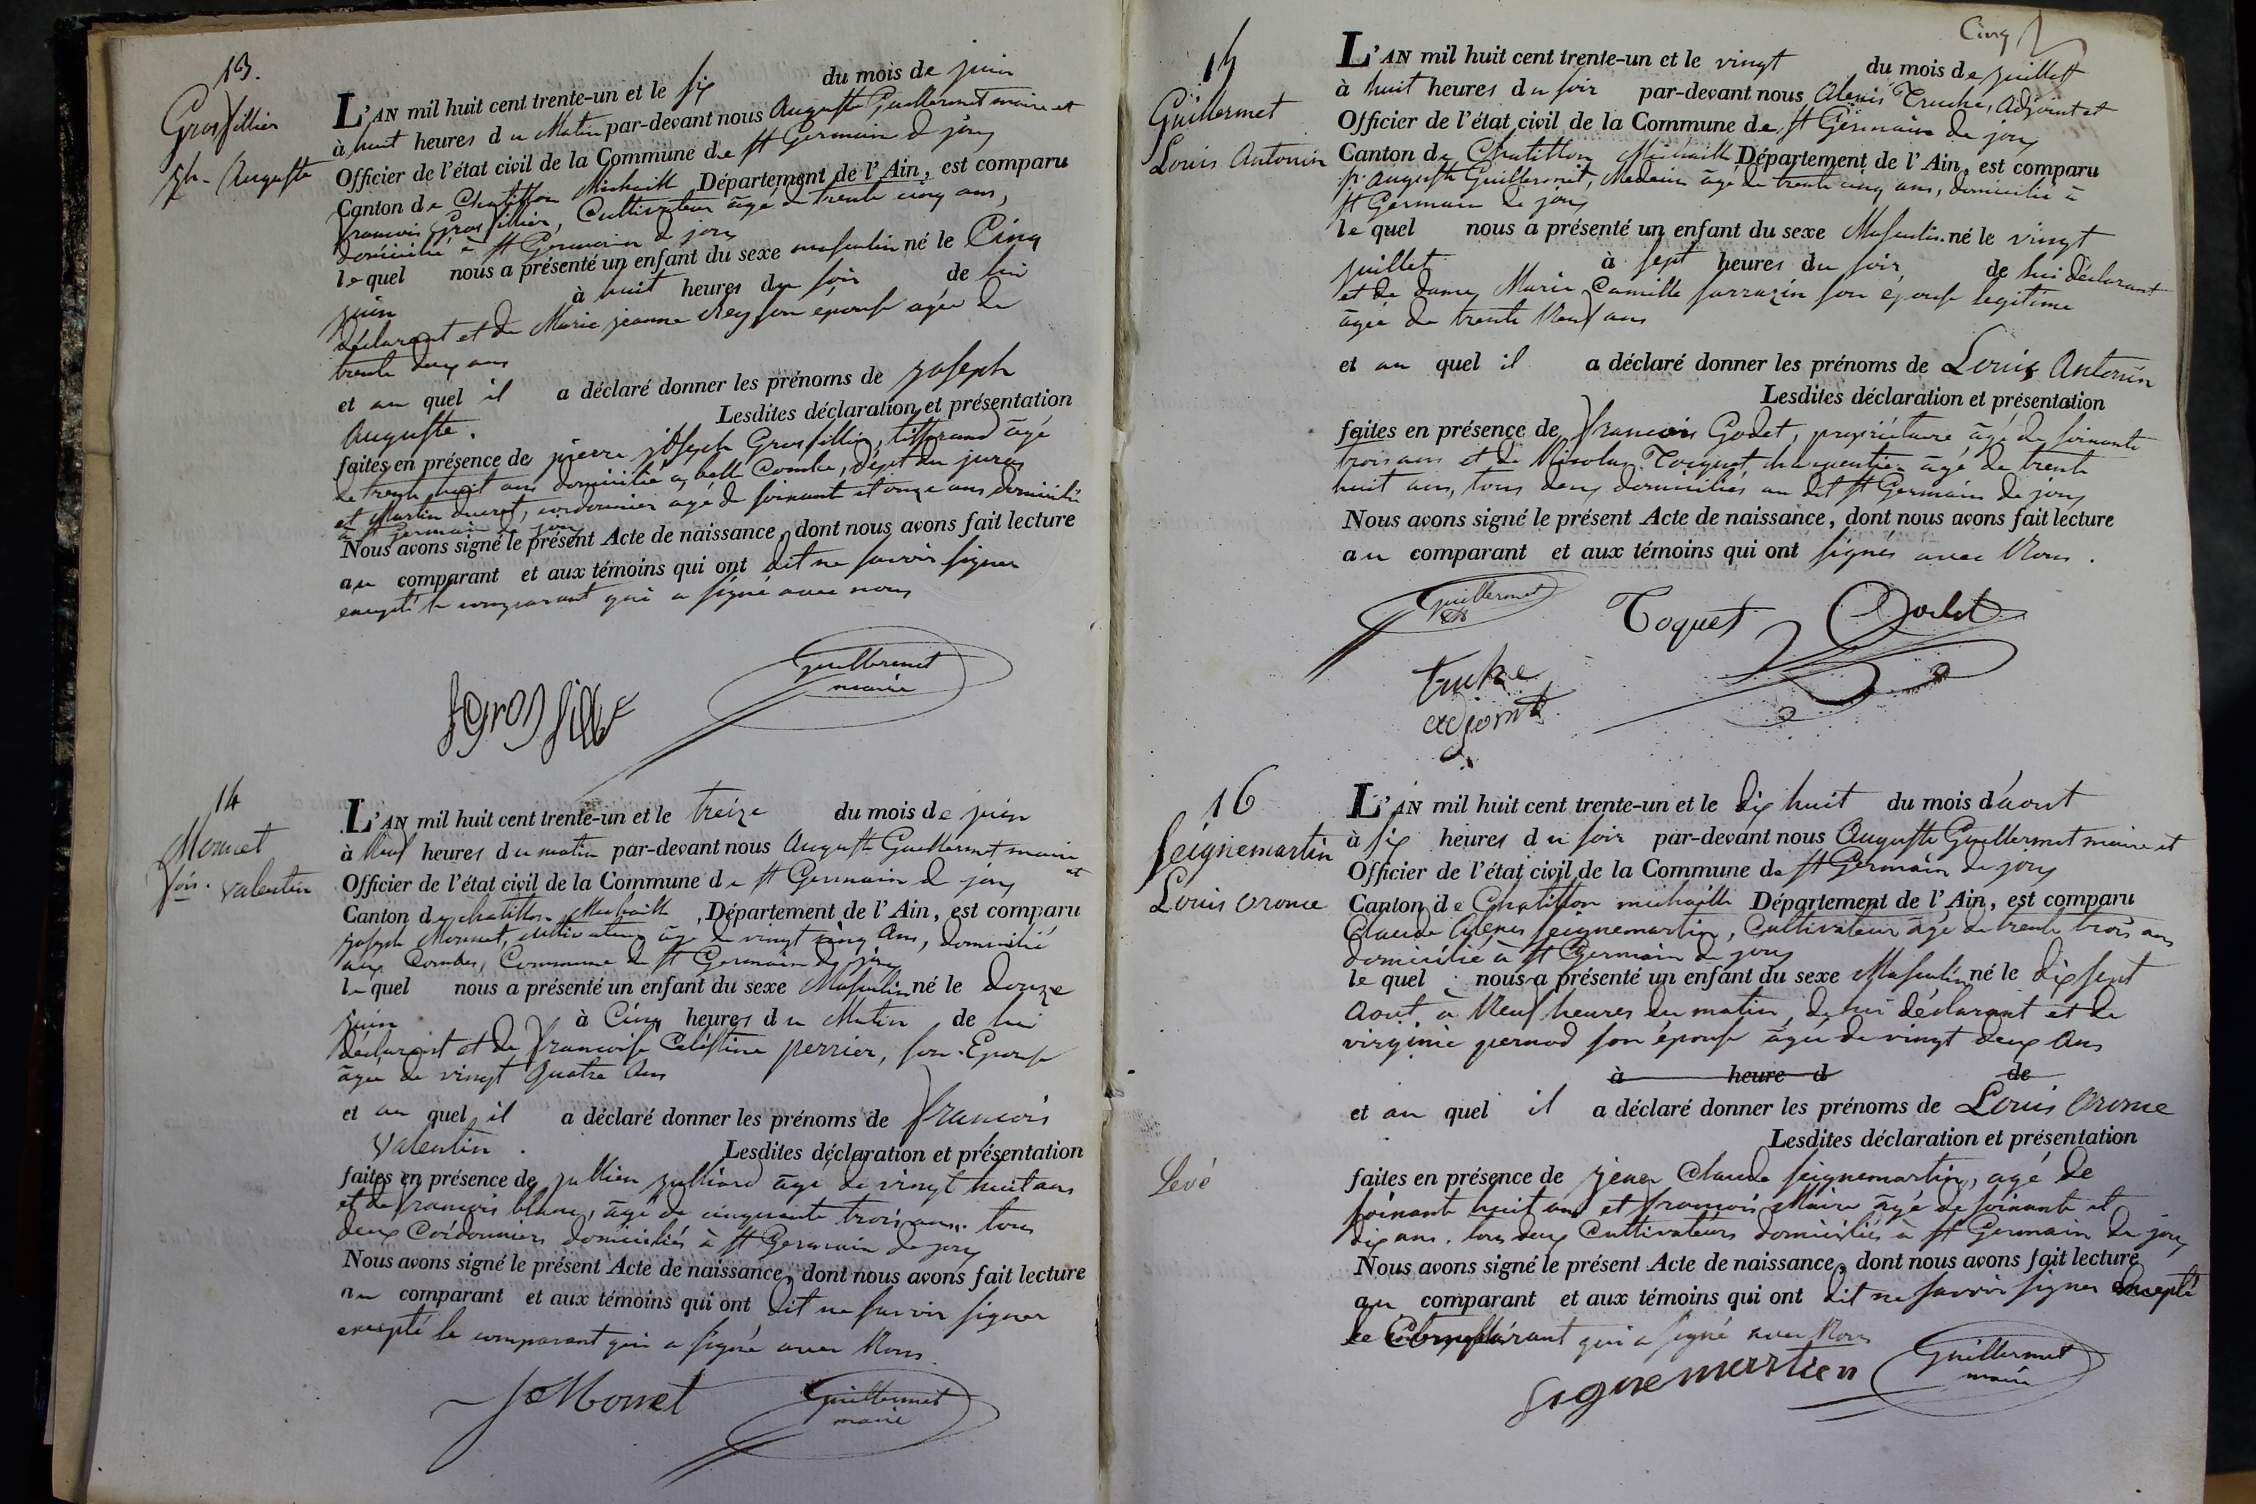 13.
Grosfillier
Jph - Auguste
L'AN mil huit cent trente-un et le six du mois de juin
à huit heures du Matin par-devant nous Auguste Guillermet maire et
Officier de l'état civil de la Commune de St Germain de joux
Canton de Chatillon Michaille Département de l'Ain, est comparu
francois Grosfillier, Cultivateur âgé de trente cinq ans,
domicilié à St Germain de joux
le quel nous a présenté un enfant du sexe masculin né le Cinq
juin à huit heures du soir de lui
déclarant et de Marie jeanne Rey son épouse agée de
trente deux ans
et au quel il a déclaré donner les prénoms de joseph
Auguste. Lesdites déclaration et présentation
faites en présence de pierre joseph Grosfillier, tisserand âgé
de trente huit ans domicilié à belle Combe, dépt du jura
et Martin ducret, cordonnier agé de soixante et onze ans domicilié
à St Germain de joux
Nous avons signé le présent Acte de naissance, dont nous avons fait lecture
au comparant et aux témoins qui ont dit ne savoir signer
excepté le comparant qui a signé avec nous
fgrosfille
Guillermet
maire
14
Monnet
fois. Valentin
L'AN mil huit cent trente-un et le treize du mois de juin
à Neuf heures du matin par-devant nous Auguste Guillermet maire et
Officier de l'état civil de la Commune de St Germain de joux
Canton de chatillon Michaille, Département de l'Ain, est comparu
joseph Monnet, cultivateur, âgé de vingt cinq Ans, domicilié
aux Combes, Commune de St Germain de joux
le quel nous a présenté un enfant du sexe Masculin né le douze
juin à Cinq heures du Matin de lui
déclarant et de francoise Celestine perrier, son Epouse
âgée de vingt quatre Ans
et au quel il a déclaré donner les prénoms de francois
Valentin. Lesdites déclaration et présentation
faites en présence de jullien julliard âgé de vingt huit ans
et de francois blanc, âgé de cinquante trois ans. tous
deux Cordonniers domiciliés à St Germain de joux
Nous avons signé le présent Acte de naissance, dont nous avons fait lecture
au comparant et aux témoins qui ont dit ne savoir signer
excepté le comparant qui a signé avec Nous
J Monnet
Guillermet
maire
Cinq
15
Guillermet
Louis Antonin
L'AN mil huit cent trente-un et le vingt du mois de juillet
à huit heures du soir par-devant nous Alexis Truche, Adjoint et
Officier de l'état civil de la Commune de St Germain de joux
Canton de Chatillon Michaille Département de l'Ain, est comparu
Auguste Guillermet, Medecin âgé de trente cinq ans, domicilié à
St Germain de joux
le quel nous a présenté un enfant du sexe Masculin né le vingt
juillet à sept heures du soir, de lui déclarant
et de dame Marie Camille Sarrazin son épouse legitime
âgée de trente Neuf ans
et au quel il a déclaré donner les prénoms de Louis Antonin
Lesdites déclaration et présentation
faites en présence de francois Godet, propriétaire âgé de soixante
trois ans et de Nicolas Tocquet charpentier âgé de trente
huit ans, tous deux domiciliés au dit St Germain de joux
Nous avons signé le présent Acte de naissance, dont nous avons fait lecture
au comparant et aux témoins qui ont signés avec Nous.
Guillermet
Toquet
Godet
truche
adjoint
16
Seignemartin
Louis Orome
Levé
L'AN mil huit cent trente-un et le dix huit du mois d'aout
à six heures du soir par-devant nous Auguste Guillermet maire et
Officier de l'état civil de la Commune de St Germain de joux
Canton de Chatillon michaille Département de l'Ain, est comparu
Claude Alexis Seignemartin, Cultivateur âgé de trente trois ans
domicilié à St Germain de joux
le quel nous a présenté un enfant du sexe Masculin né le dix sept
Aout à Neuf heures du matin, de lui déclarant et de
virginie pernod son épouse âgée de vingt deux Ans
à heure d de
et au quel il a déclaré donner les prénoms de Louis Orome
Lesdites déclaration et présentation
faites en présence de jean Claude Seignemartin, agé de
soixante huit ans et francois Maire âgé de soixante et
dix ans. tous deux Cultivateurs domiciliés à St Germain de joux
Nous avons signé le présent Acte de naissance, dont nous avons fait lecture
au comparant et aux témoins qui ont dit ne savoir signer excepté
le Comparant qui a signé avec Nous
signemartien
Guillermet
maire